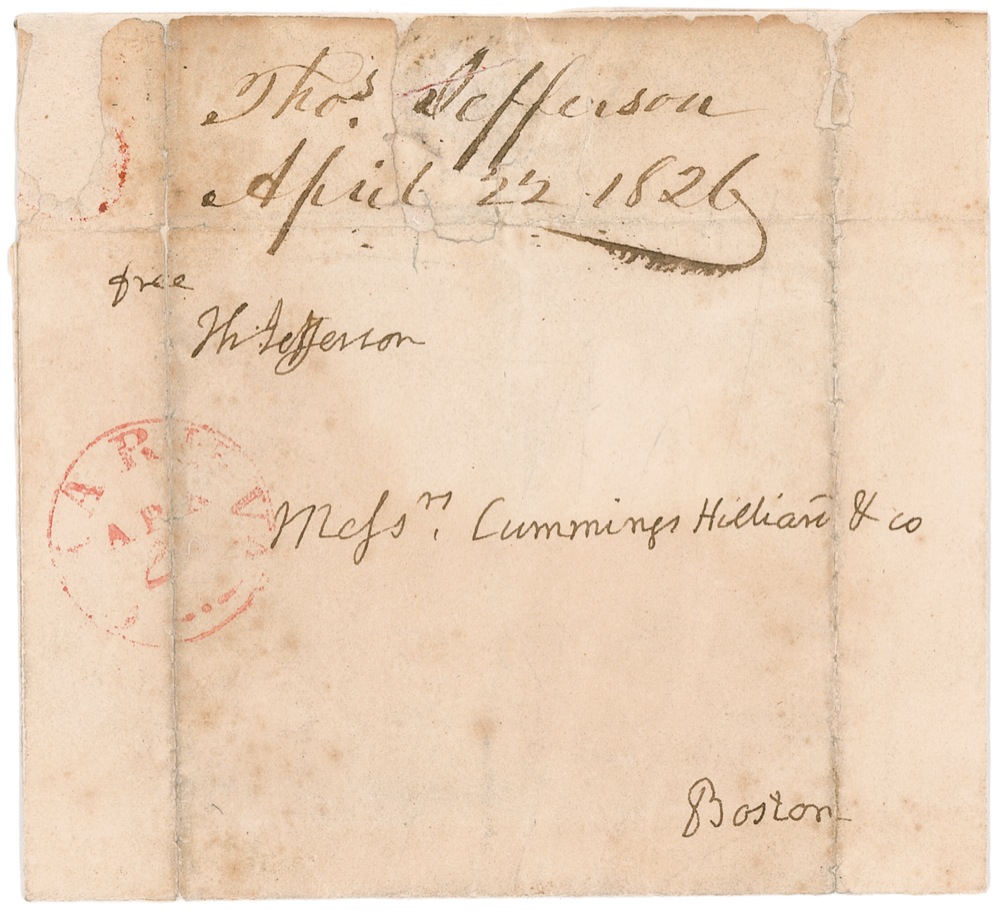 Thos. Jefferson
April 22 1826
free
Th: Jefferson
Messrs. Cummings Hilliard & co
Boston